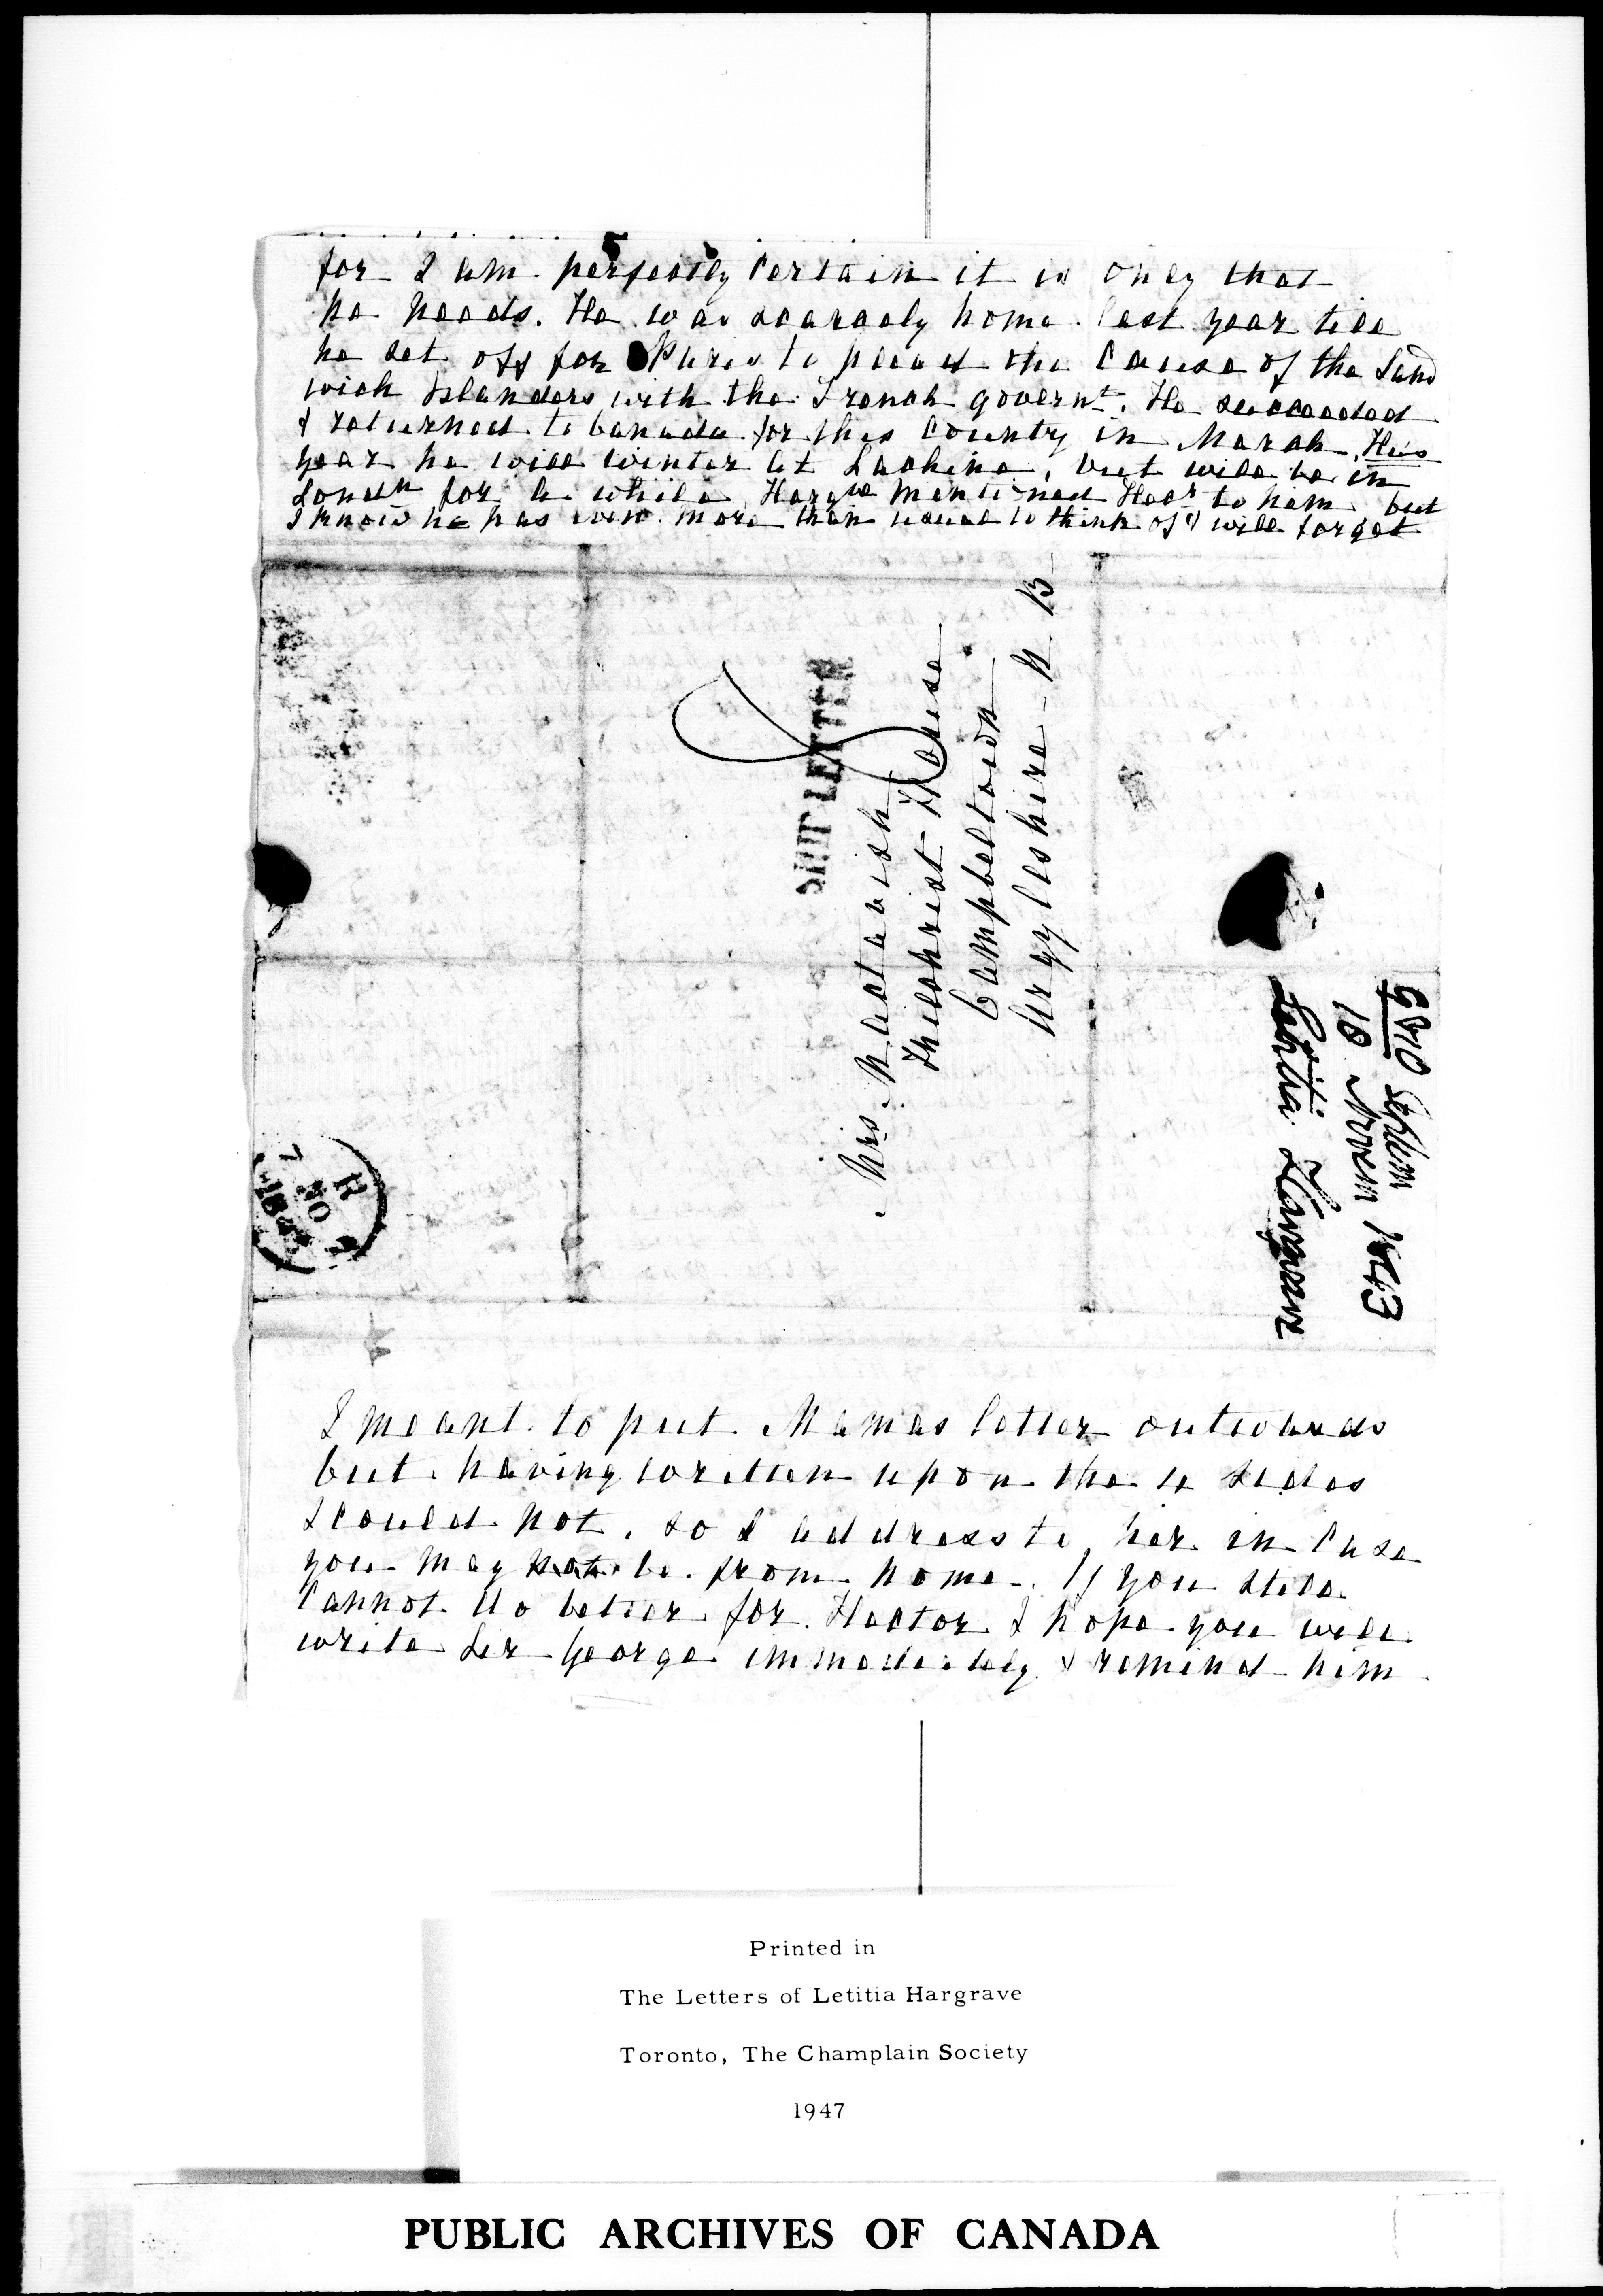 for I am perfectly certain it is only that
he needs. He was scarcely home last year till
he set off for Paris to plead the cause of the Sand
wich Islanders with the French governt. He succeeded
& returned to Canada for this country in March. This
year he will winter at Lachine, but will be in
Londn for a while. Hargve mentioned Hecr to him but
I know he has even more than usual to think of & will forget
SHIP LETTER
Mrs. Mactavish
Kilchrist House
Campbeltown
Argyleshire - N B
9 Septem
10 Novem 1843
Letitia Hargrave
R
7 NO 7
I meant to put Mamas letter outwards
but having written upon the 4 sides
I could not, so I address to her in case
you may not be from home. If you still
cannot do better for Hector I hope you will
write Sir George immediately & remind him
Printed in
The Letters of Letitia Hargrave
Toronto, The Champlain Society
1947
PUBLIC ARCHIVES OF CANADA